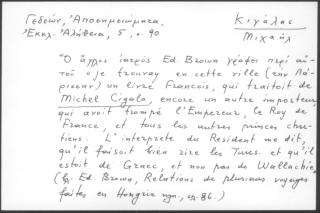 Γεδεών, Ἀποσημειώματα,
Ἐκκλ. Ἀλήθεια, 5, σ. 90
Κιγάλας
Μιχαήλ
"Ὁ ἄγγλος ἰατρὸς Ed. Brown γράφει περὶ αὐ-
τοῦ "je trouvay en cette ville (τὴν Λά-
ρισσαν) un livre Francois, qui traitoit de
Michel Cigala, encore un autre imposteur
qui avoit trompé l'Empereur, le Roy de
France, et tous les autres princes chre-
tiens. L'interprete du Resident me dit,
qu'il faisoit bien rire les Turcs. et qu'il
estoit de Graec, et non pas de Wallachie,
Ed. Brown, Relations de plusieurs voyages
faites en Hongrie σ. 86.)